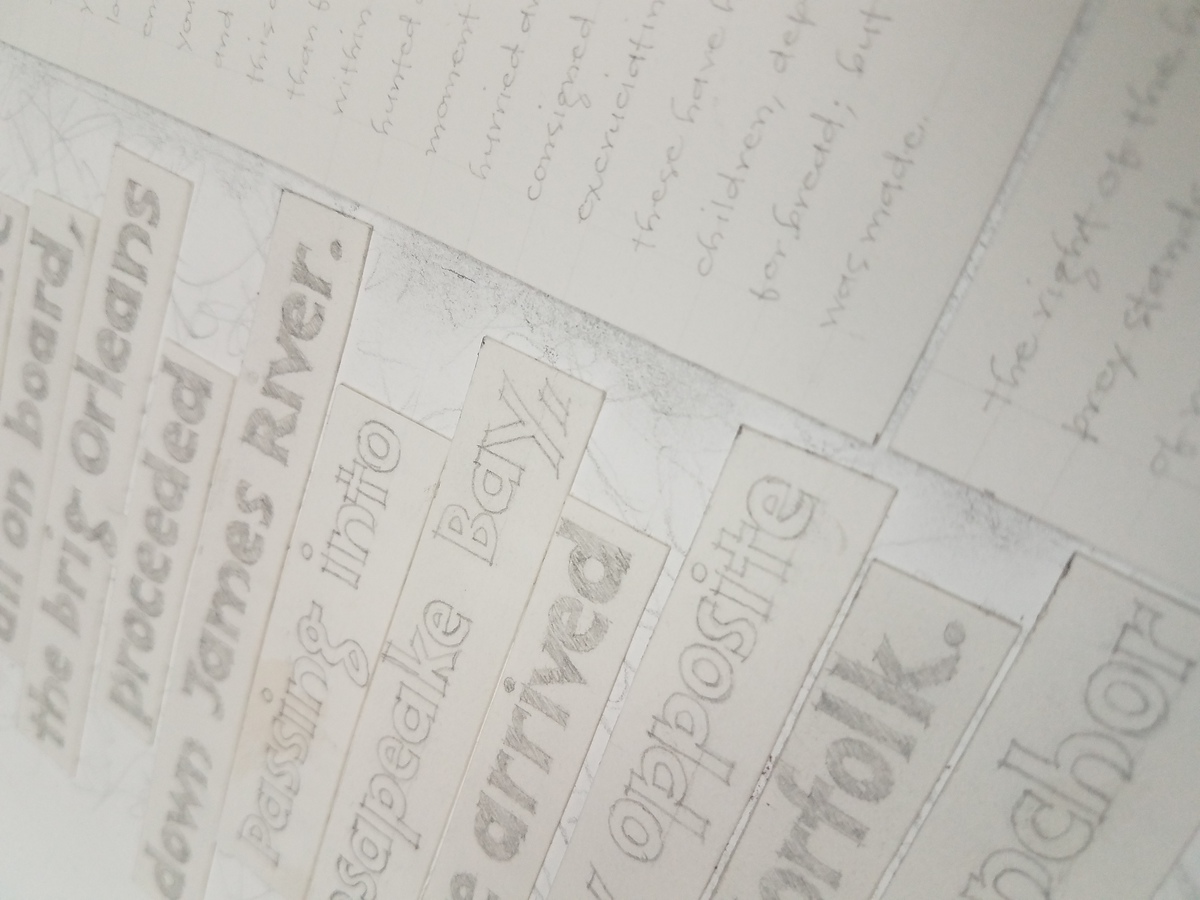 all on board,
the brig Orleans
proceeded
down James River.
Passing into
sapeake Bay,
e arrived
opposite
orfolk.
nchor
and
this
than
within
hunted
moment
hurried
consigned
excruciatin
these have
children, dep
for bread; but
was made.
the right of the
prey stand
of